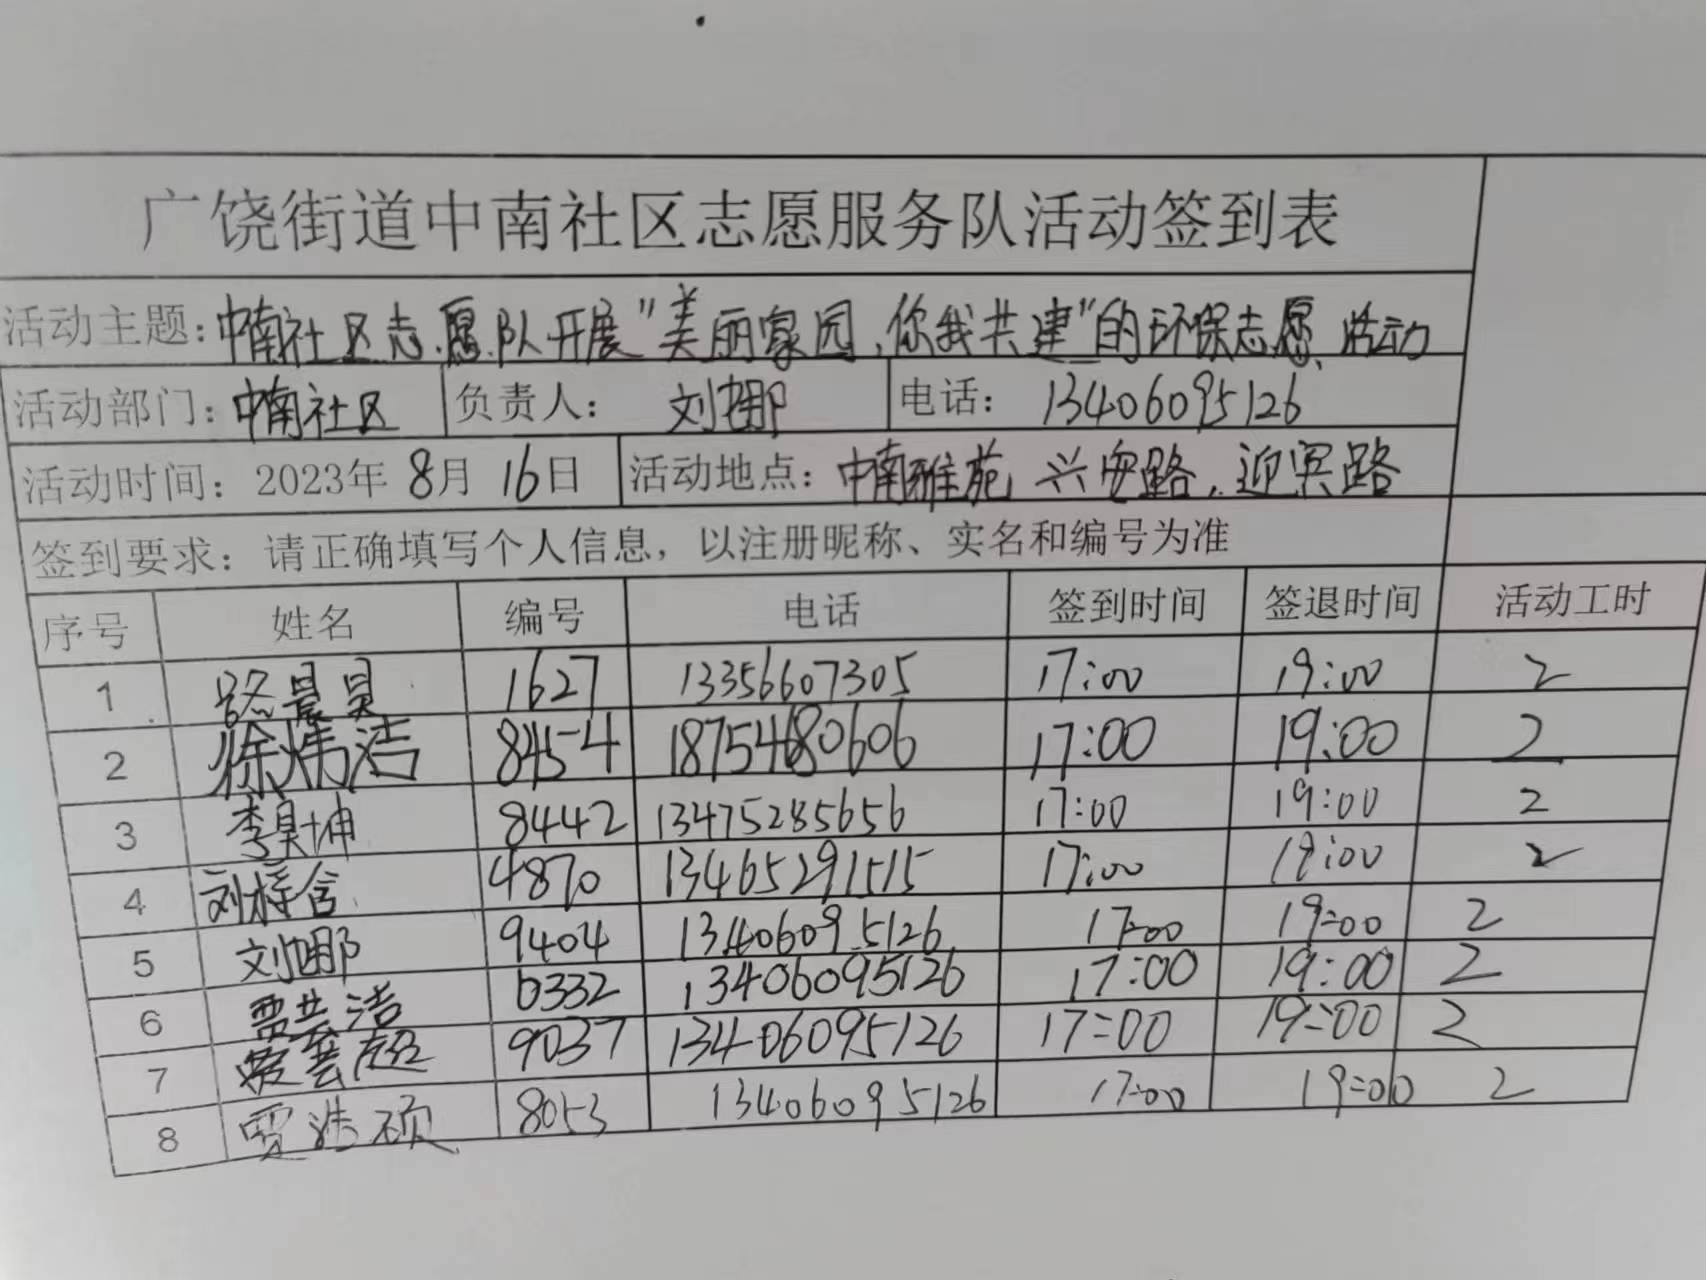 广饶街道中南社区志愿服务队活动签到表
活动主题：中南社区志愿队开展"美丽家园，你我共建"的环保志愿活动
活动部门：中南社区 负责人： 刘娜 电话： 13406095126
活动时间：2023年 8月 16日 活动地点：中南雅苑 兴安路，迎宾路
签到要求：请正确填写个人信息，以注册昵称、实名和编号为准
序号 姓名 编号 电话 签到时间 签退时间 活动工时
1 1627 13356607305 17:00 19:00 2
2 徐炜洁 8454 18754680606 17:00 19:00 2
3 李昊坤 8442 13475285656 17:00 19:00 2
4 刘梓含 4870 13465291515 17:00 19:00 2
5 刘娜 9404 13406095126 17:00 19:00 2
6 贾芸洁 6332 13406095126 17:00 19:00 2
7 9037 13406095126 17:00 19:00 2
8 贾浩硕 8053 13406095126 17:00 19:00 2